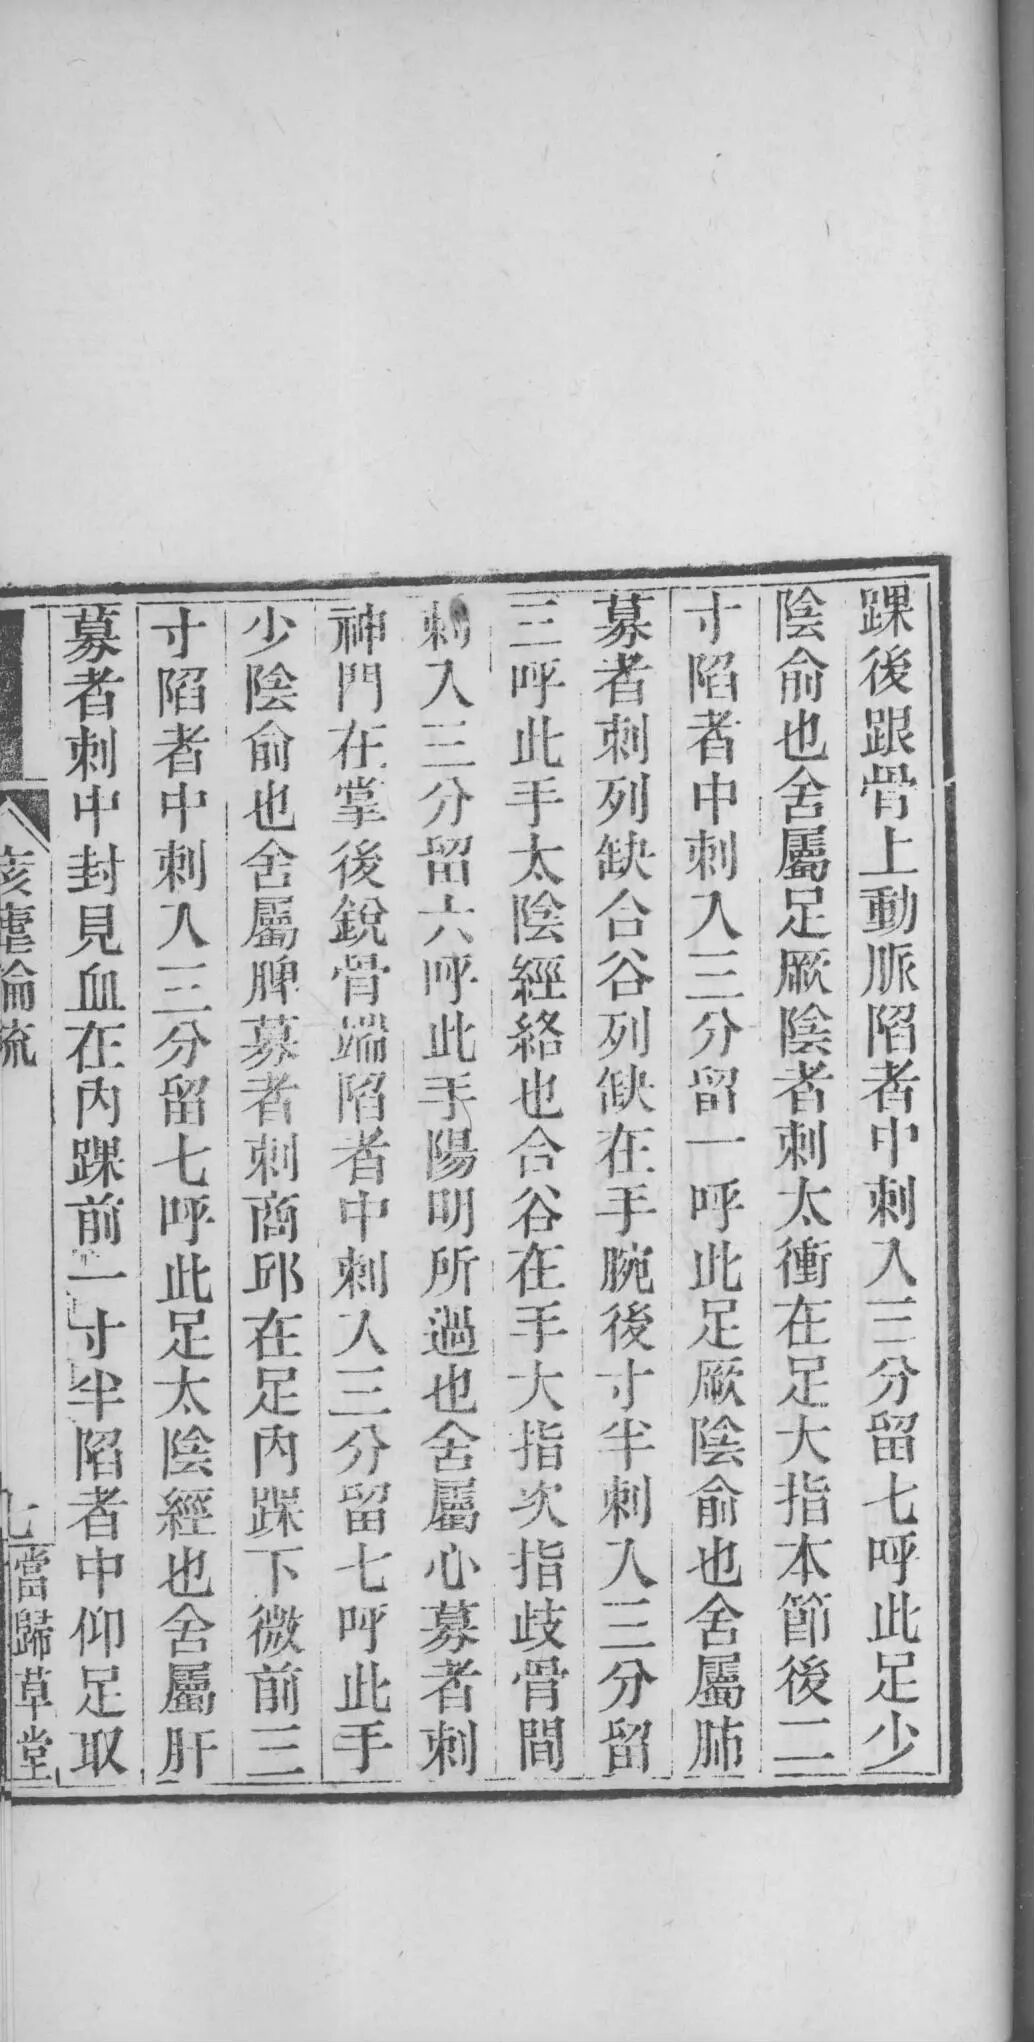 踝後跟骨上動脈陷者中刺入三分留七呼此足少
陰俞也舍屬足厥陰者刺太衝在足大指本節後二
寸陷者中刺入三分留一呼此足厥陰俞也舍屬肺
募者刺列缺合谷列缺在手腕後寸半刺入三分留
三呼此手太陰經絡也合谷在手大指次指歧骨間
刺入三分留六呼此手陽明所過也舍屬心募者刺
神門在掌後銳骨端陷者中刺入三分留七呼此手
少陰俞也舍屬脾募者刺商邱在足內踝下微前三
寸陷者中刺入三分留七呼此足太陰經也舍屬肝
募者刺中封見血在內踝前一寸半陷者中仰足取
痎瘧論疏
七
當歸草堂